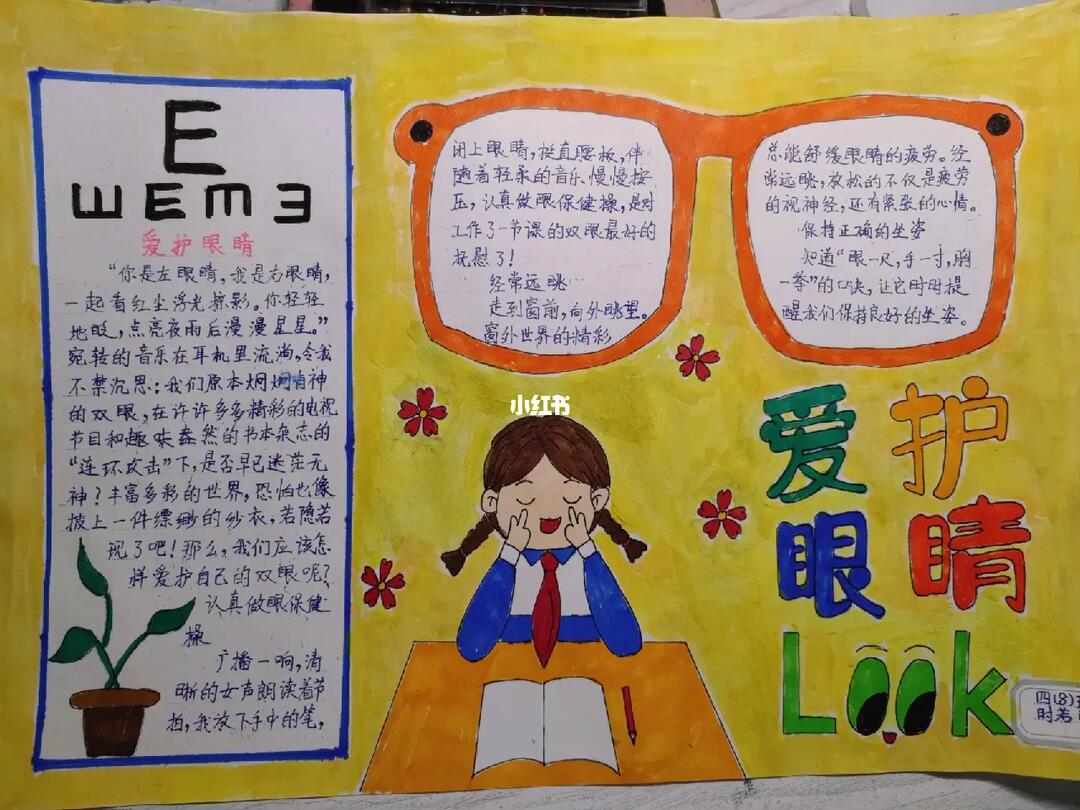 E
ШЕmヨ
爱护眼睛
“你是左眼睛，我是右眼睛，
一起看红尘浮光掠影。你轻轻
地眨，点亮夜雨后漫漫星星。”
宛转的音乐在耳机里流淌，令我
不禁沉思：我们原本炯炯有神
的双眼，在许许多多精彩的电视
节目和趣味盎然的书本杂志的
“连环攻击”下，是否早已迷茫无
神？丰富多彩的世界，恐怕也像
披上一件缥缈的纱衣，若隐若
现了吧！那么，我们应该怎
样爱护自己的双眼呢？
认真做眼保健
操
广播一响，清
晰的女声朗读着节
拍，我放下手中的笔，
闭上眼睛，挺直腰板，伴
随着轻柔的音乐、慢慢按
压，认真做眼保健操，是对
工作了一节课的双眼最好的
抚慰了！
经常远眺
走到窗前，向外眺望。
窗外世界的精彩
总能舒缓眼睛的疲劳。经
常远眺，放松的不仅是疲劳
的视神经，还有紧张的心情。
保持正确的坐姿
知道“眼一尺，手一寸，胸
一拳”的口诀，让它时时提
醒我们保持良好的坐姿。
小红书
爱护
眼睛
Look
四(8)
时若